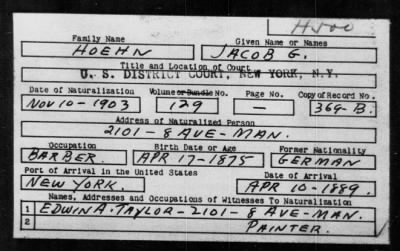 H500
Family Name Given Name or Names
HOEHN JACOB G.
Title and Location of Court
U. S. DISTRICT COURT, NEW YORK, N.Y.
Date of Naturalization Volume or Bundle No. Page No. Copy of Record No.
NOV 10-1903 129 — 369-B.
Address of Naturalized Person
2101-8 AVE-MAN.
Occupation Birth Date or Age Former Nationality
BARBER. APR 17-1875 GERMAN
Port of Arrival in the United States Date of Arrival
NEW YORK. APR 10-1889.
Names, Addresses and Occupations of Witnesses To Naturalization
1 EDWIN A. TAYLOR-2101-8 AVE-MAN.
2 PAINTER.